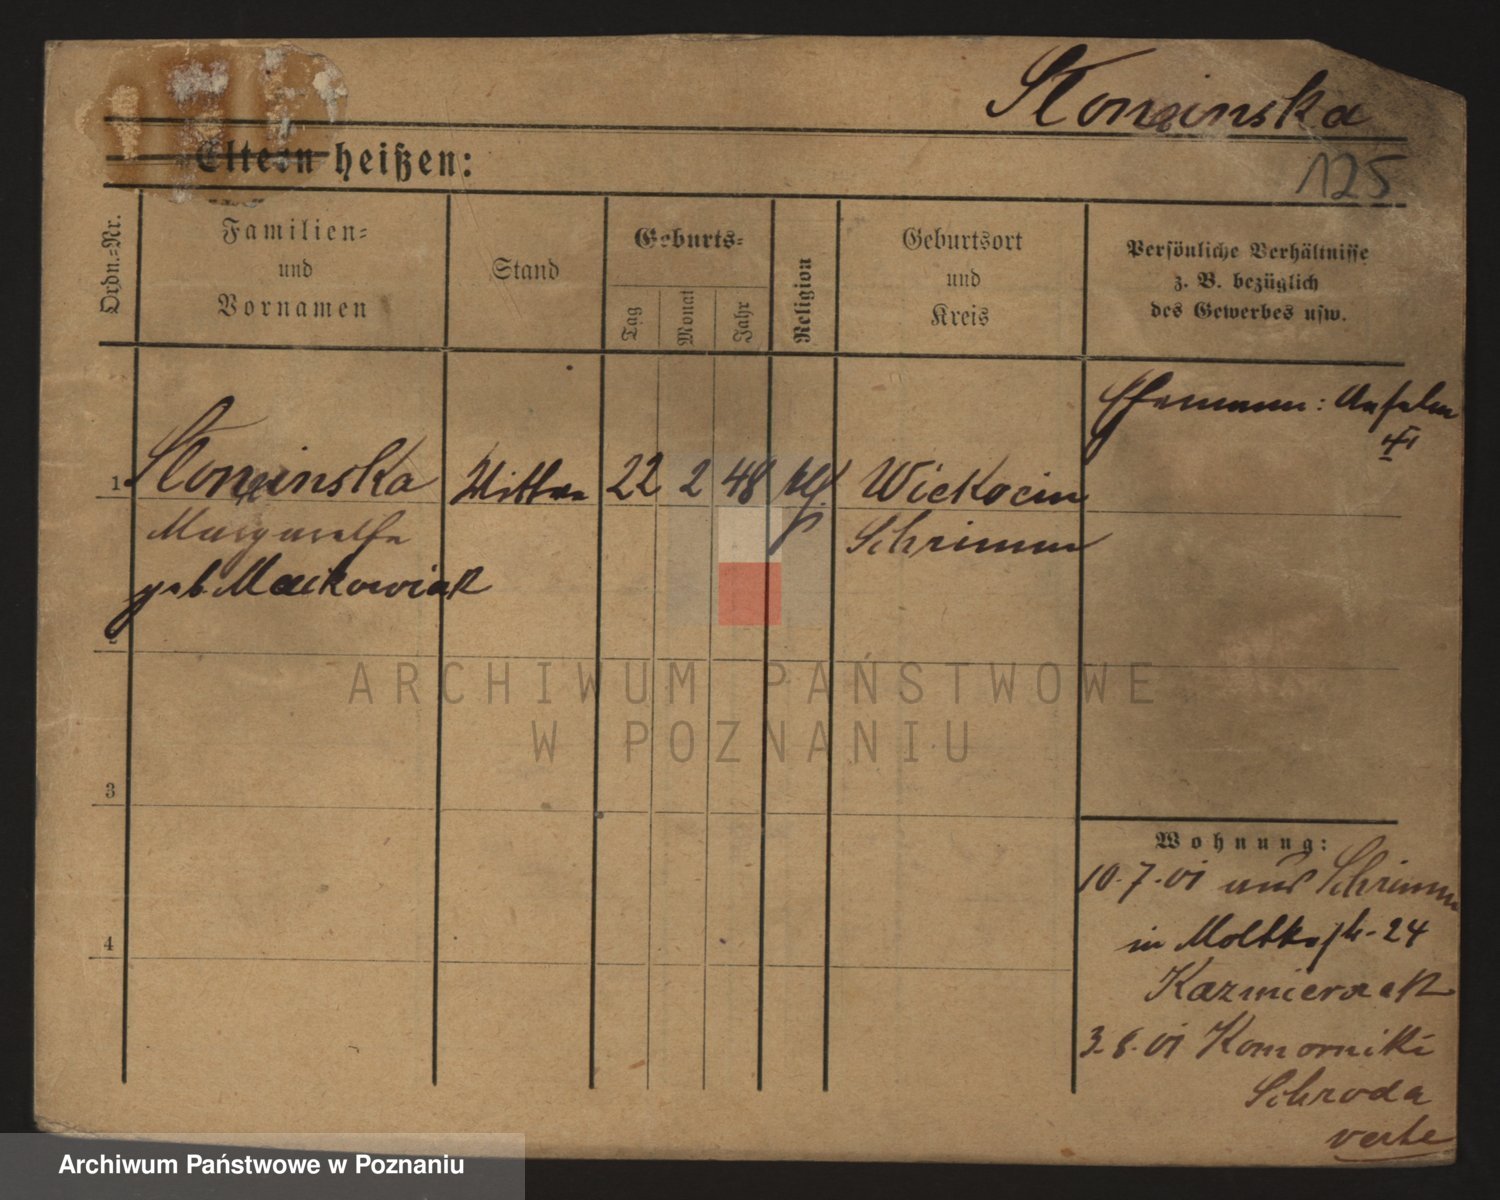 Słoninska
125
Eltern heißen:
Ordn.-Nr.
Familien-
und
Vornamen
Stand
Geburts-
Tag
Monat
Jahr
Religion
Geburtsort
und
Kreis
Persönliche Verhältnisse
z. B. bezüglich
des Gewerbes usw.
Ehemann: Anselm
1 Słoninska Wittwe 22 2 48 Wiekocin
Margarethe Schrimm
geb. Maikowiak
3
4
Wohnung:
10.7.01 aus Schrimm
in Moltkestr. 24
Kazmierczak
3.8.01 Komorniki
Schroda
verte
ARCHIWUM PAŃSTWOWE
W POZNANIU
Archiwum Państwowe w Poznaniu